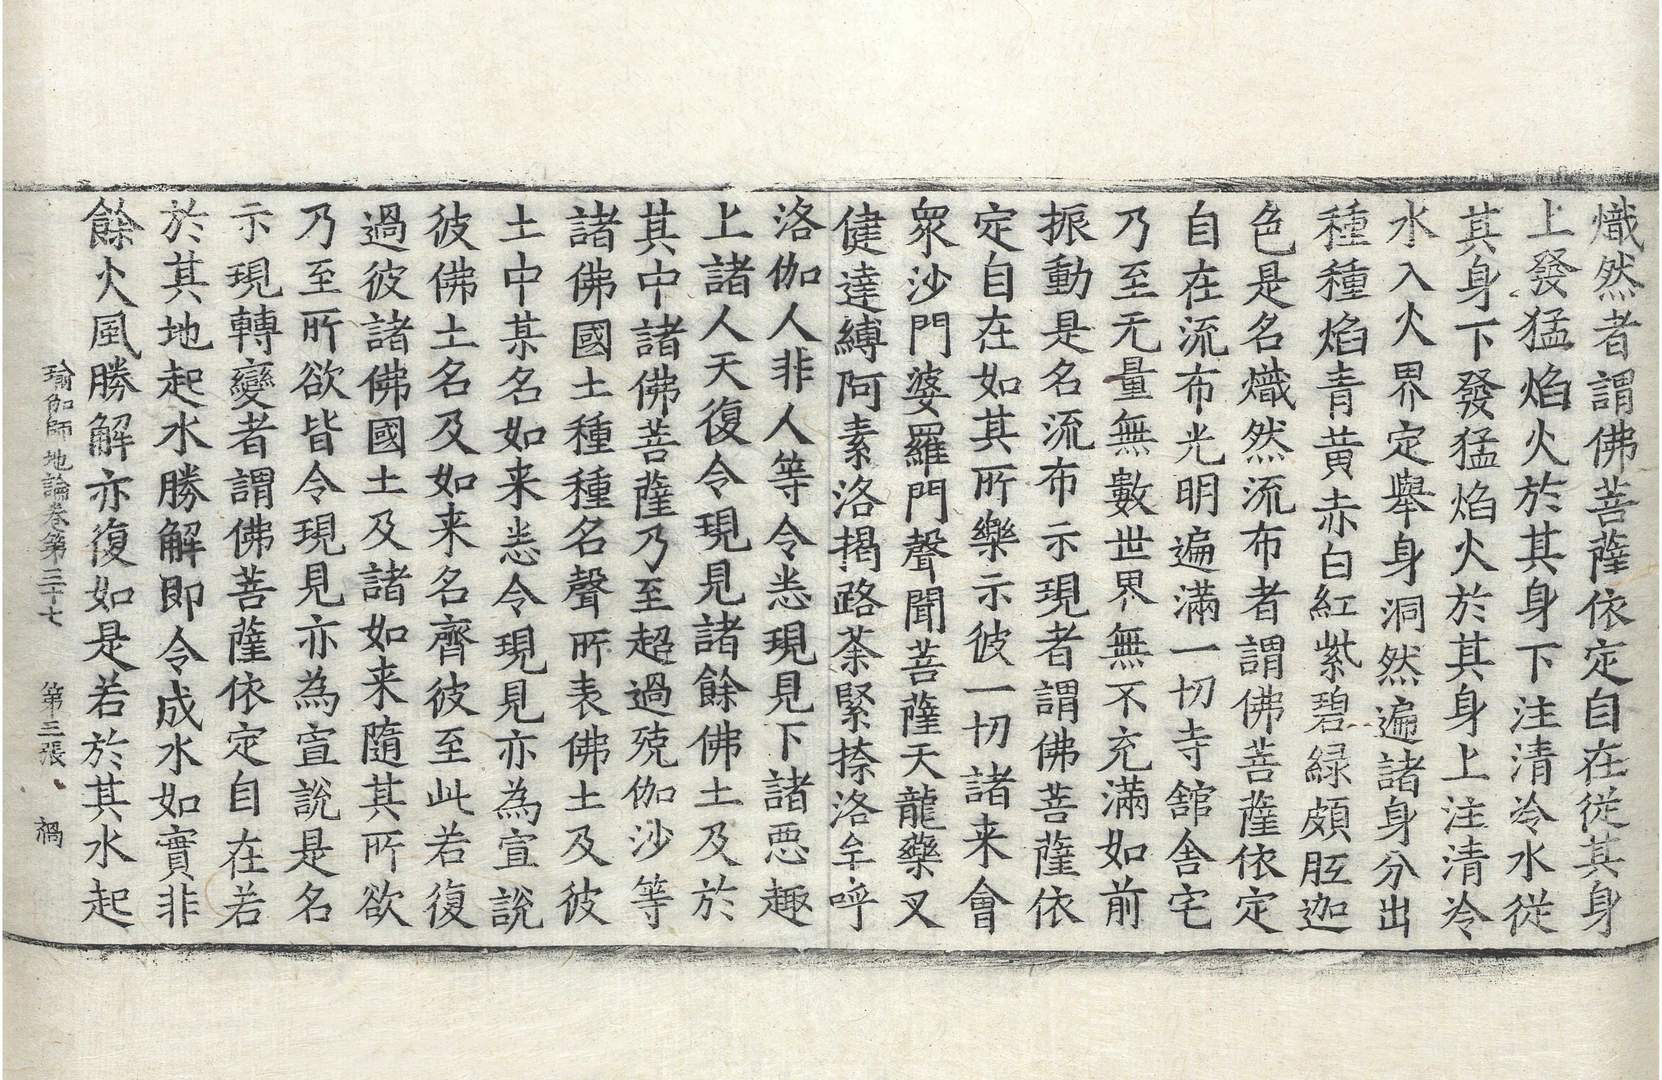 熾然者謂佛菩薩依定自在従其身
上發猛焰火於其身下注清冷水従
其身下發猛焰火於其身上注清冷
水入火界定舉身洞然遍諸身分出
種種焰青黄赤白紅紫碧緑頗胝迦
色是名熾然流布者謂佛菩薩依定
自在流布光明遍滿一切寺舘舎宅
乃至无量無數世界無不充滿如前
振動是名流布示現者謂佛菩薩依
定自在如其所樂示彼一切諸来會
衆沙門婆羅門聲聞菩薩天龍藥叉
健達縛阿素洛揭路荼緊捺洛牟呼
洛伽人非人等令悉現見下諸惡趣
上諸人天復令現見諸餘佛土及於
其中諸佛菩薩乃至超過殑伽沙等
諸佛國土種種名聲所表佛土及彼
土中某名如来悉令現見亦為宣說
彼佛土名及如来名齊彼至此若復
過彼諸佛國土及諸如来隨其所欲
乃至所欲皆令現見亦為宣說是名
示現轉變者謂佛菩薩依定自在若
於其地起水勝解即令成水如實非
餘火風勝解亦復如是若於其水起
瑜伽師地論卷第三十七　第三張　禍